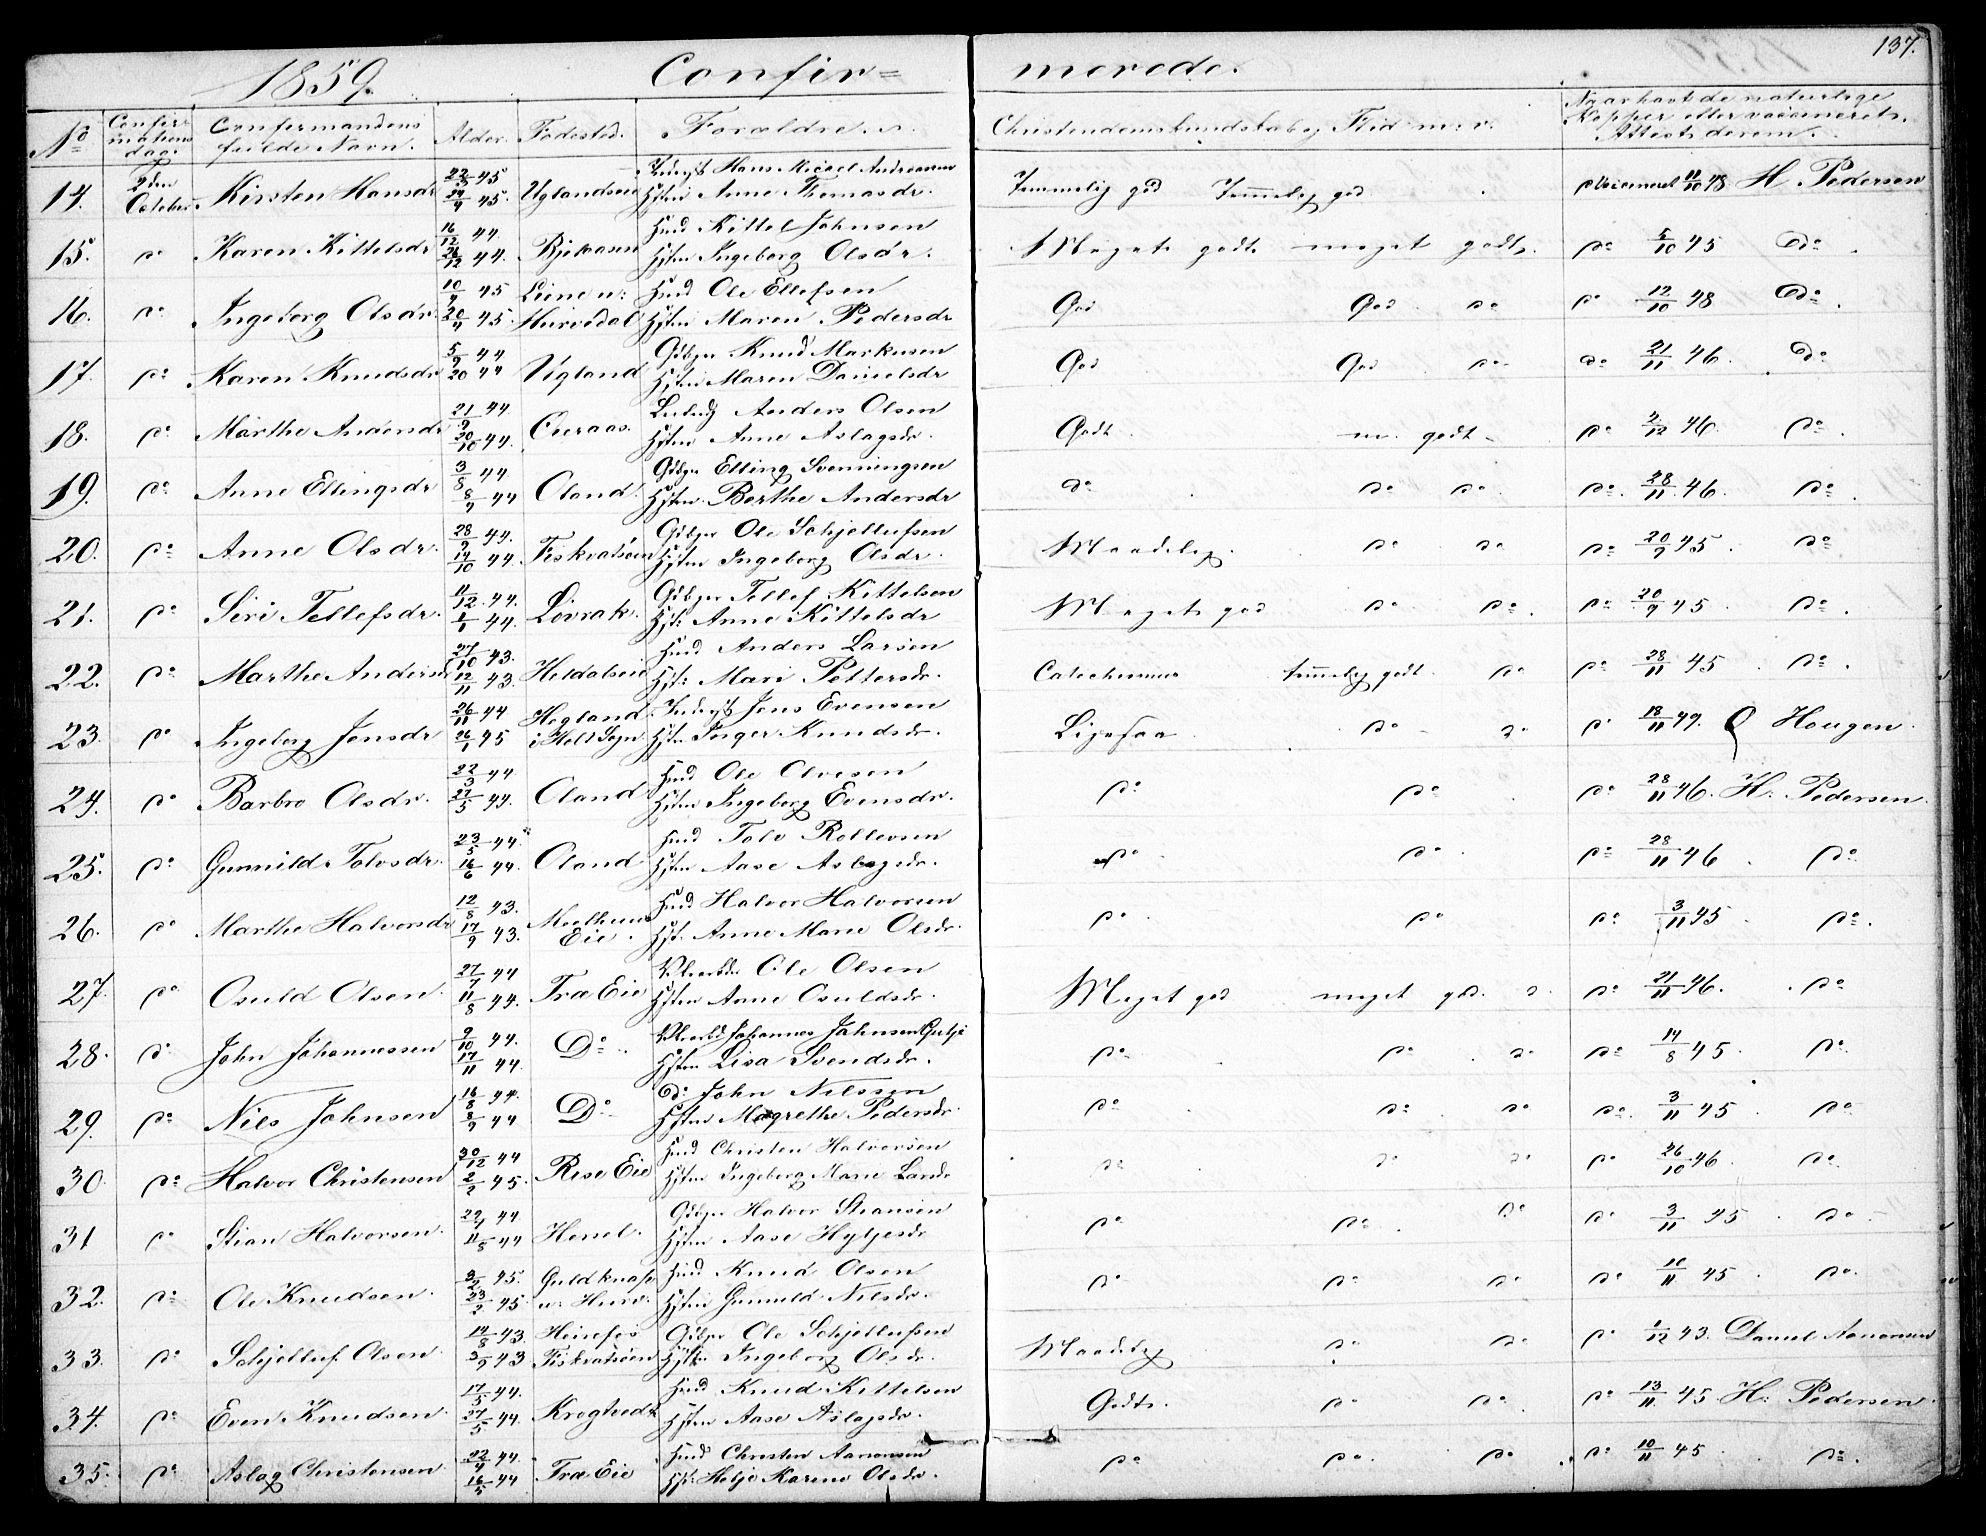 137.
1859. Confir= merede.
No Confirmations dag Confirmandens fulde Navn. Alder. Fødested. Forældre. Christendomskundskab og Flid m.v. Naar havt de naturlige Kopper eller vaccineret, Attest derom.
14. 2den October Kirsten Hansdr 45 45. Hans Micael Andreassen
Hstru Anne Thomasdr. Temmelig god Temmelig god 11/10 48 H. Pedersen
15. do Karen Kittelsdr 16/12 44. 26/12 44. Husd Kittel Johnsen
Hstru Ingeborg Olsdr. Meget godt meget godt. do 5/10 45 Do.
16. do Ingeborg Olsdr. 10/4 45 20/4 45. Liene u: Hurvedal Husd Ole Ellefsen
Hstru Maren Pedersdr God God do do 12/10 48 Do
17. do Karen Knudsdr 5/9 44 20 44 Vigland Gdbgr Knud Markusen
Hstru Maren Danielsdr God God do do 21/11 46. Do
18. do Marthe Andersdr 21/9 44. 20/10 44. Anders Olsen
Hstru Anne Aslagsdr. Godt m. godt do 2/12 46. do
19. do Anne Ellingsdr 3/8 44 8/9 44 Oland. Gdbgr Elling Svenningsen
Hstru Berthe Andersdr do do do do. 28/11 46. do.
20. do Anne Olsdr. 28/9 44. 14/10 44. Fiskvatsøen Gdbgr Ole Schjellufsen
Hstru Ingeborg Olsdr. Maadelig. do do do 20/9 45. do
21. do Siri Tellefsdr. 11/12 44. 1/1 44. Løvrak. Gdbgr Tellef Kittelsen
Hst: Anne Kittelsdr Meget god do do. do 20/9 45. do.
22. do Marthe Andersdr 27/10 43. 12/11 43. Heldalseie Husd Anders Larsen
Hst: Mari Pettersdr. temmelig godt. do do 28/11 45. do.
23. do Ingeborg Jensdr 26/11 44 26/1 45 Hegland. i Holt Sogn Jens Evensen
Hstru Inger Knudsdr. Ligesaa do do do 18/11 49. O Hougen.
24. do Barbro Olsdr. 22/3 44 27/5 44. Oland Husd Ole Olvesen
Hstru Ingeborg Evensdr. do do do 28/11 46. H. Pedersen.
25. do Gunnild Tolvsdr. 23/5 44. 16/6 44. Oland Husd Tolv Rollevsen
Hstru Aase Aslagsdr. do do. do 28/11 46. do
26. do Marthe Halvorsdr 12/8 43. 17/9 43. Eie. Husd Halvor Halvorsen
Hst. Anne Marie Olsdr. do. do do 3/11 45. do.
27. do Osuld Olsen. 27/7 44 11/8 44. Træ Eie Ole Olsen
Hstru Anne Osuldsdr. Meget god meget god. do do 21/11 46. do
28. do John Johannessen 9/10 44. 17/11 44. Do. Johannes Johnsen
Hstru Lisa Svendsdr. do do. do do 14/8 45. do.
29. do Nils Johnsen 16/8 44. 8/9 44 Do Do John Nilssen
Hstru Magrethe Pedersdr. do do do do. 3/11 45. do
30. do Halvor Christensen 30/12 44 2/2 45. Rise Eie Husd Christen Halvorsen
Hstru Ingeborg Marie Larsdr do do do do 26/10 46. do.
31 do Stian Halvorsen. 44. 11/8 44 Gdbgr Halvor Stiansen
Hstru Aase do do. do do 3/11 45. do.
32. do Ole Knudsen. 45. 23/2 45 Husd Knud Olsen
Hstru Gunnild Nilsdr. do do do do. 10/11 45. do.
33. do Schjelluf Olsen. 14/8 43. 3/9 43 Heirefos Fiskvatsøen Gdbgr Ole Schjellufsen
Hstru Ingeborg Olsdr. Maadelig do. do do 1/12 43. Daniel Aanonsen
34. do Even Knudsen. 17/5 44. 27/5 44. Krogtvedt Husd Knud Kittelsen
Hstru Aase Aslagsdr. Godt. do do. do 13/11 45 H. Pedersen.
35. do Aslag Christensen 22/4 44. 16/5 44 Træ Eie Husd Christen Aanonsen
Hst. Helje Karine Olsdr. do do. do do 10/11 45. do.